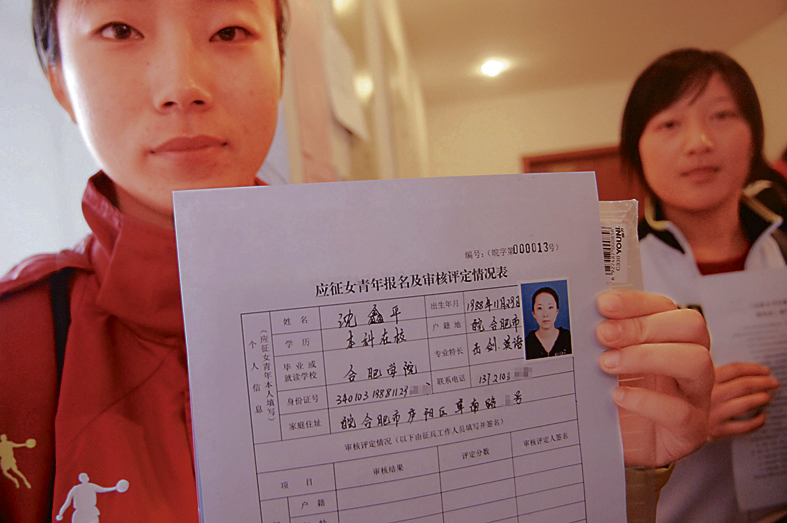 编号:(皖字第000013号)
应征女青年报名及审核评定情况表
个人信息
(应征女青年本人填写)
姓名 沈鑫平 出生年月 1988年11月29日
学历 本科在校 户籍地 皖合肥市
毕业或就读学校 合肥学院 专业特长 击剑.英语
身份证号 340103 19881129 联系电话 1372103
家庭住址 皖合肥市庐阳区阜南路 号
审核评定情况(以下由征兵工作人员填写并签名)
项目 审核结果 评定分数 审核评定人签名
户籍
年龄
YOUNI